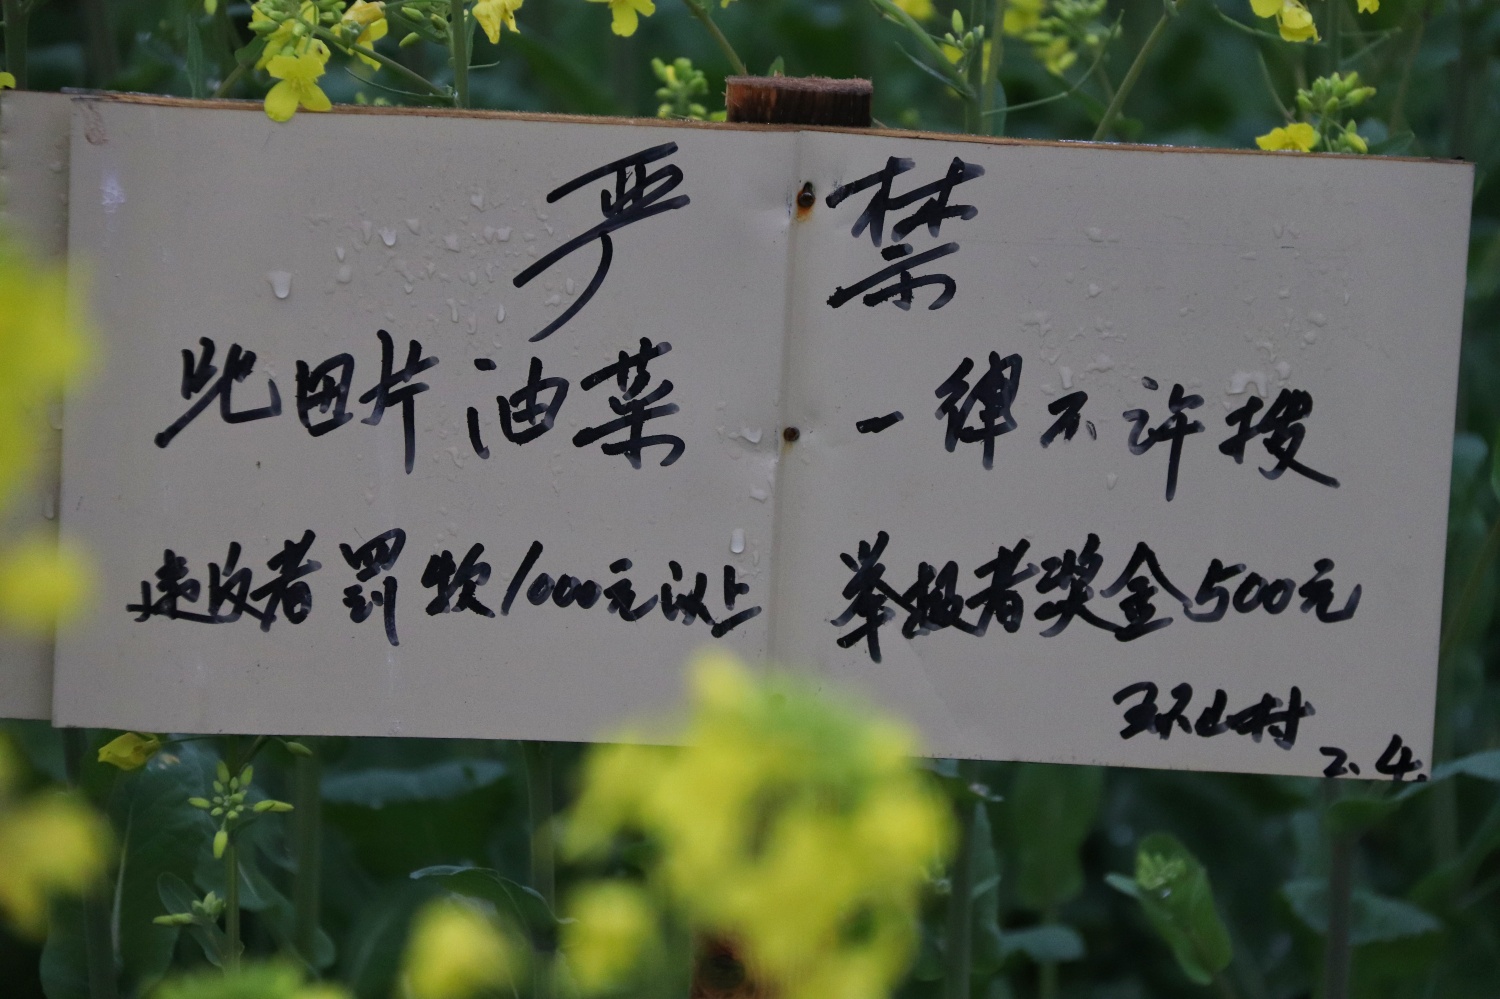 严禁
此田片油菜 一律不许拔
违反者罚款1000元以上 举报者奖金500元
环山村
2.4.